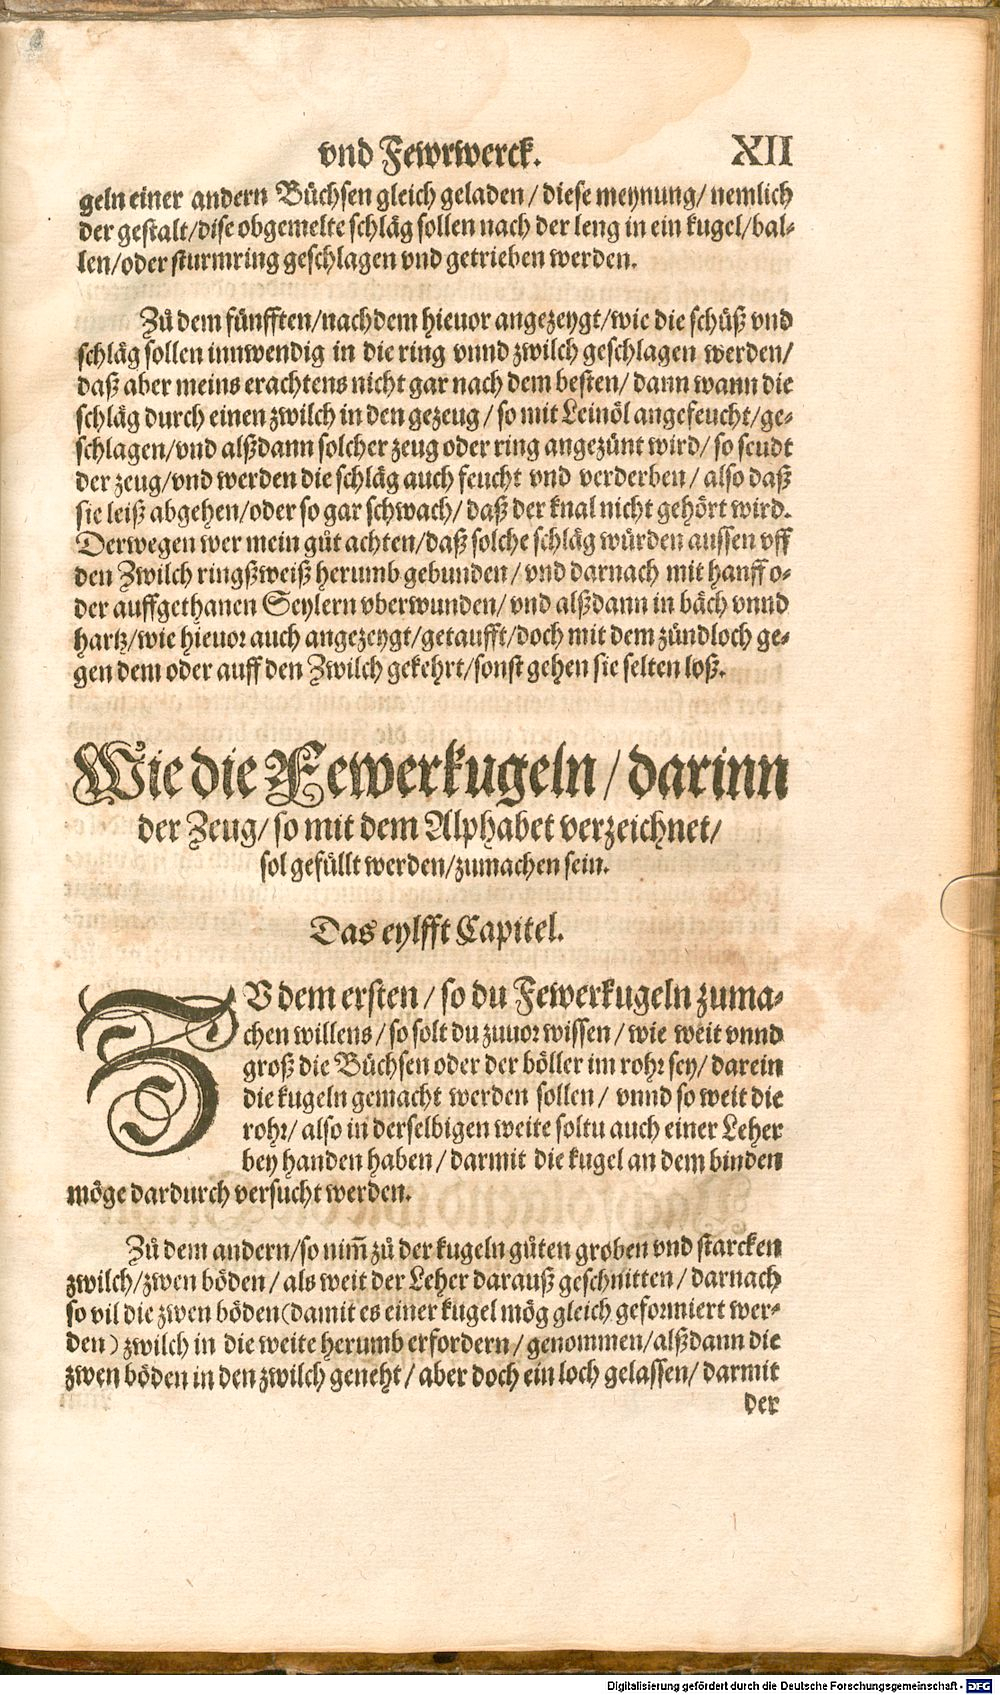 vnd Fewrwerck. XII
geln einer andern Büchsen gleich geladen / diese meynung / nemlich
der gestalt / dise obgemelte schläg sollen nach der leng in ein kugel / bal-
len / oder sturmring geschlagen vnd getrieben werden.
Zů dem fünfften / nachdem hieuor angezeygt / wie die schüß vnd
schläg sollen innwendig in die ring vnnd zwilch geschlagen werden /
daß aber meins erachtens nicht gar nach dem besten / dann wann die
schläg durch einen zwilch in den gezeug / so mit Leinöl angefeucht / ge-
schlagen / vnd alßdann solcher zeug oder ring angezünt wird / so seudt
der zeug / vnd werden die schläg auch feucht vnd verderben / also daß
sie leiß abgehen / oder so gar schwach / daß der knal nicht gehört wird.
Derwegen wer mein gůt achten / daß solche schläg würden aussen vff
den Zwilch ringßweiß herumb gebunden / vnd darnach mit hanff o-
der auffgethanen Seylern vberwunden / vnd alßdann in bäch vnnd
hartz / wie hieuor auch angezeygt / getaufft / doch mit dem zündloch ge-
gen dem oder auff den Zwilch gekehrt / sonst gehen sie selten loß.
Wie die Fewerkugeln / darinn
der Zeug / so mit dem Alphabet verzeichnet /
sol gefüllt werden / zumachen sein.
Das eylfft Capitel.
ZV dem ersten / so du Fewerkugeln zuma-
chen willens / so solt du zuuor wissen / wie weit vnnd
groß die Büchsen oder der böller im rohr sey / darein
die kugeln gemacht werden sollen / vnnd so weit die
rohr / also in derselbigen weite soltu auch einer Leher
bey handen haben / darmit die kugel an dem binden
möge dardurch versucht werden.
Zů dem andern / so nim̃ zů der kugeln gůten groben vnd starcken
zwilch / zwen böden / als weit der Leher darauß geschnitten / darnach
so vil die zwen böden (damit es einer kugel mög gleich geformiert wer-
den) zwilch in die weite herumb erfordern / genommen / alßdann die
zwen böden in den zwilch geneht / aber doch ein loch gelassen / darmit
der
Digitalisierung gefördert durch die Deutsche Forschungsgemeinschaft - DFG